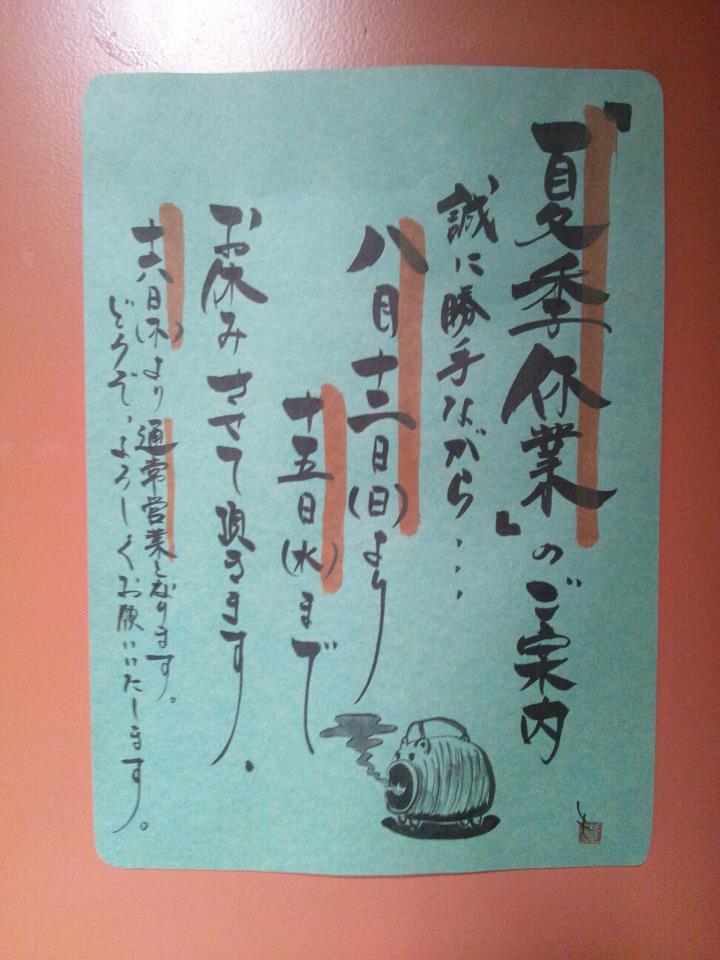 『夏季休業』のご案内
誠に勝手ながら・・・
八月十二日(日)より
十五日(水)まで
お休みさせて頂きます。
十六日(木)より通常営業となります。
どうぞ、よろしくお願いいたします。